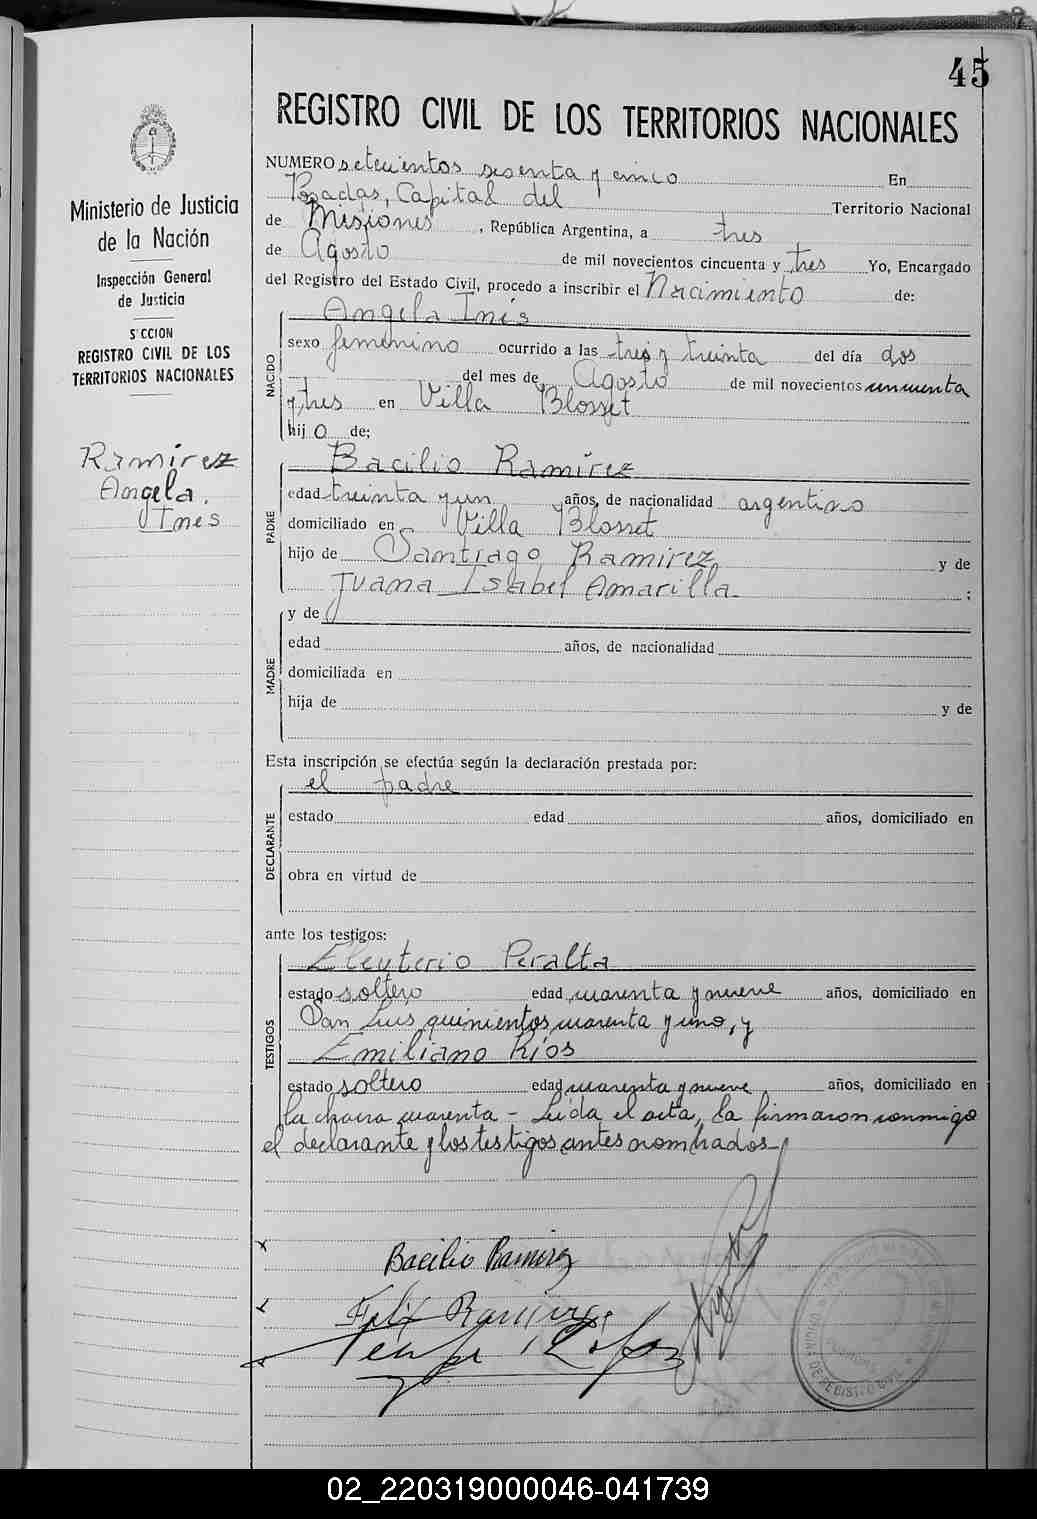 45
REGISTRO CIVIL DE LOS TERRITORIOS NACIONALES
Ministerio de Justicia
de la Nación
Inspección General
de Justicia
S CCION
REGISTRO CIVIL DE LOS
TERRITORIOS NACIONALES
Ramírez
Angela.
Ines
NUMERO setecientos sesenta y cinco En
Posadas, Capital del Territorio Nacional
de Misiones, República Argentina, a tres
de Agosto de mil novecientos cincuenta y tres Yo, Encargado
del Registro del Estado Civil, procedo a inscribir el Nacimiento de:
Angela Inés
NACIDO
sexo femenino ocurrido a las tres y treinta del día dos
del mes de Agosto de mil novecientos cincuenta
y tres en Villa Blosset
hij a de;
Bacilio Ramírez
PADRE
edad treinta y un años, de nacionalidad argentino
domiciliado en Villa Blosset
hijo de Santiago Ramírez y de
Juana Isabel Amarilla ;
y de
MADRE
edad años, de nacionalidad
domiciliada en
hija de y de
Esta inscripción se efectúa según la declaración prestada por:
el padre
DECLARANTE
estado edad años, domiciliado en
obra en virtud de
ante los testigos:
Eleuterio Peralta
TESTIGOS
estado soltero edad cuarenta y nueve años, domiciliado en
San Luis quinientos cuarenta y uno, y
Emiliano Ríos
estado soltero edad cuarenta y nueve años, domiciliado en
la chacra cuarenta - Leída el acta, la firmaron conmigo
el declarante y los testigos antes nombrados
Bacilio Ramirez
Felix Ramirez
02_220319000046-041739